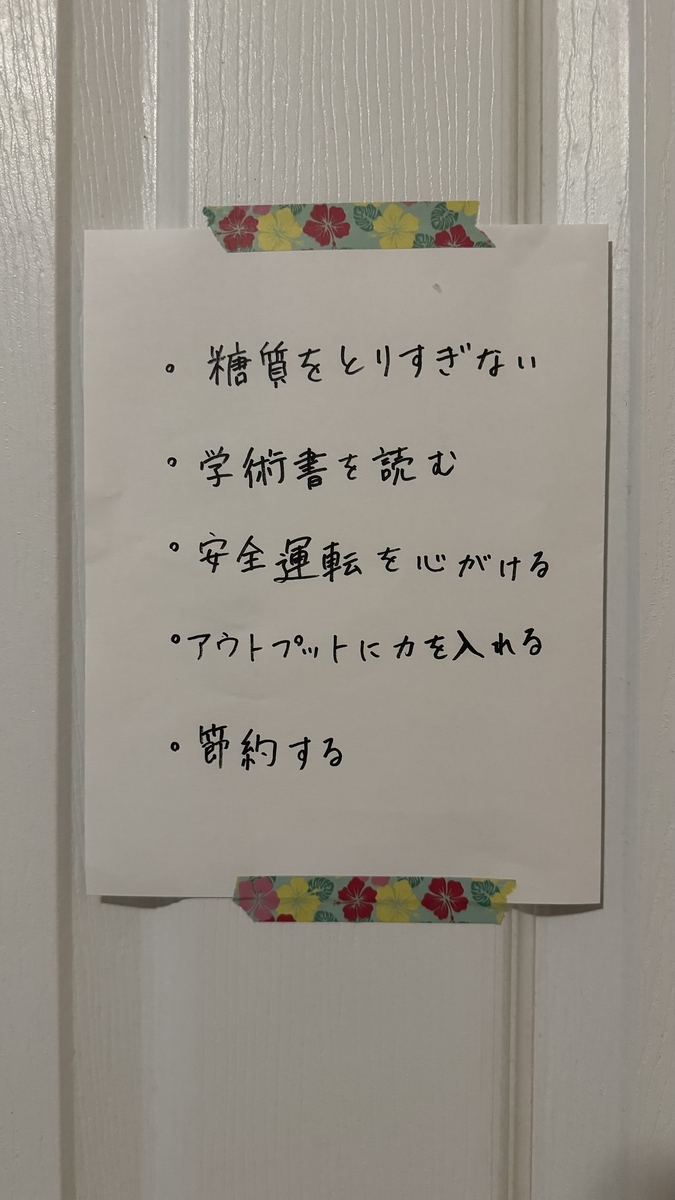 。糖質をとりすぎない
。学術書を読む
。安全運転を心がける
。アウトプットに力を入れる
。節約する